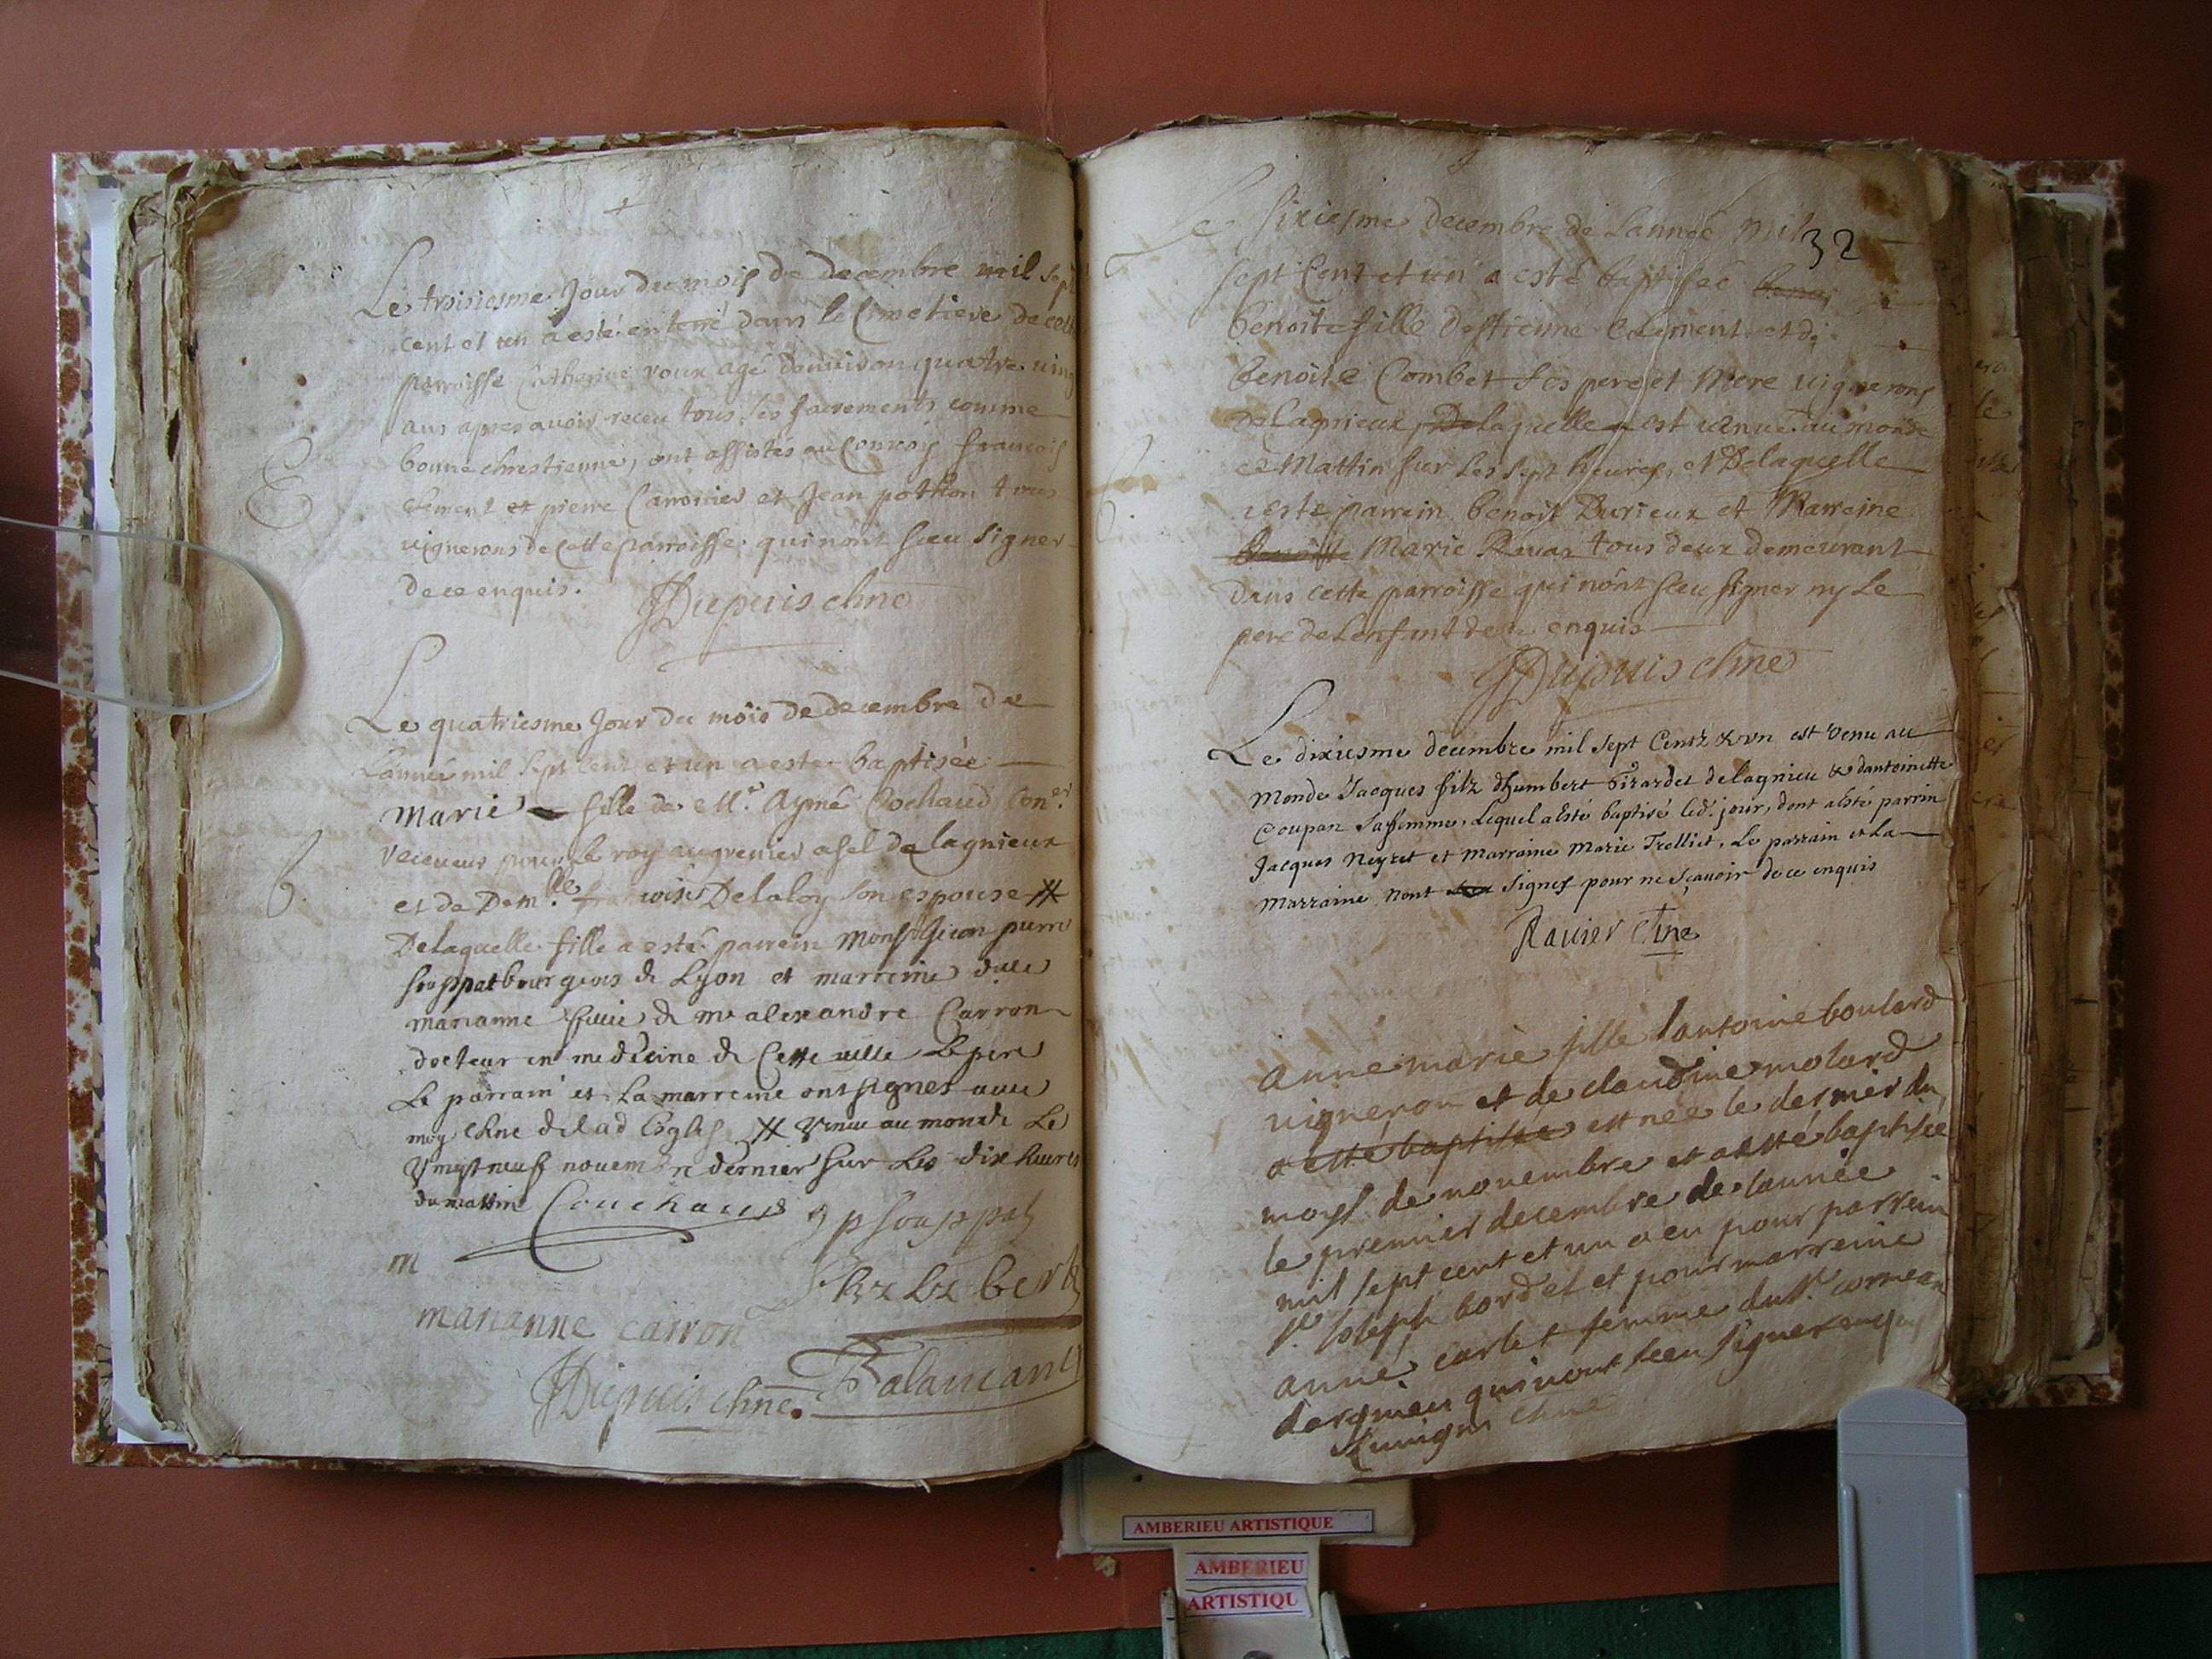 Le troisiesme Jour du mois de decembre mil sept
cent et un a esté enterré dans le Cimetiere de cette
parroisse Catherine roux agé denviron quatre ving
ans apres avoir receu tous les sacrements comme
bonne chrestienne, ont assistés au Convoy francois
Clement et pierre Carronier et Jean pothon tous
vignerons de cette parroisse qui nont sceu signer
de ce enquis.
JDupuis chne
Le quatriesme Jour du mois de decembre de
Lannée mil sept cent et un a este baptisée
Marie fille de Mr. Aymé Cochaud Coner
receveur pour le roy au grenier a sel de lagnieux
et de Demlle. Delaloy son espouse
Delaquelle fille a esté parrein Monsr Jean pierre
souppat bourgeois de Lyon et marreine dlle
marianne fillie de mr alexandre Carron
docteur en medecine de Cette ville Le pere
Le parrain et La marreine ont signes avec
moy chne de lad Eglise venue au monde Le
vingt neuf novembre dernier sur Les dix heures
du mattin Couchaud J p souppat
m
marianne carron
JDupuis chne. Balancand
32
Le sixiesme decembre de Lannée mil
sept Cent et un a esté baptisée
benoite fille destienne Clement et de
benoite Combet ses pere et Mere vignerons
de Lagnieux, Delaquelle est venue au monde
ce Mattin sur Les sept heures, et Delaquelle
a esté parrein benoit Durieux et Marreine
Marie Ravas tous deux demeurant
Dans cette parroisse qui n'ont sceu signer ny Le
pere de Lenfant de ce enquis
JDupuis chne
Le dixiesme decembre mil sept Centz & vn est venu au
Monde Jacques filz dhumbert Girardet de lagnieu & dantoinette
Coupan Sa femme, Lequel a esté baptisé led. jour, dont a esté parrin
Jacques Neyret et marraine Marie Trolliet, Le parrain et La
Marraine nont signes pour ne sçavoir de ce enquis
Ravier Chne
Anne marie fille dantoine boulard
vigneron et de claudine molard
a esté baptisée est née le dernier du
moys de novembre et a esté baptisée
le premier decembre de lannée
mil sept cent et un a eu pour parrein
Sr. Joseph bordet et pour marreine
anne carlet femme du Sr.
qui nont sceu signer enquis
chne
AMBERIEU ARTISTIQUE
AMBERIEU
ARTISTIQU